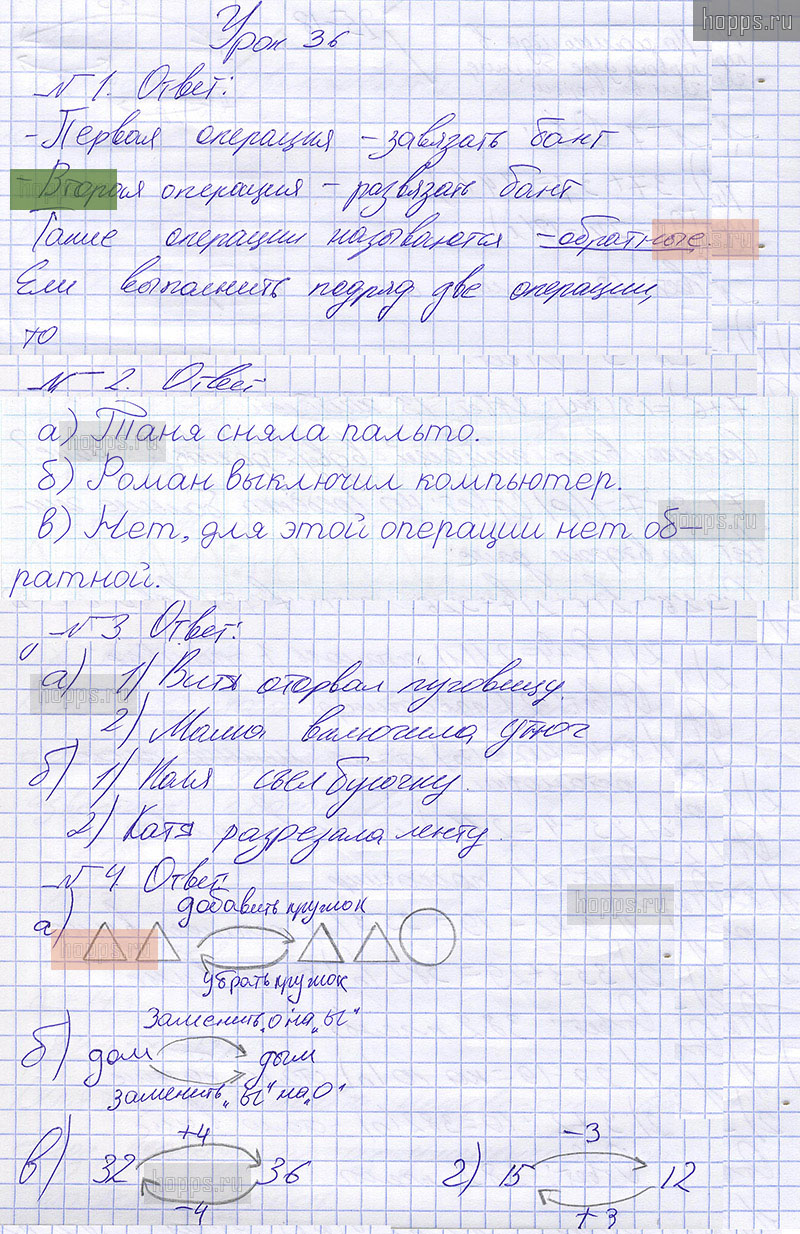 hopps.ru
Урок 36
№ 1. Ответ:
- Первая операция - завязать бант
- Вторая операция - развязать бант
Такие операции называются - обратные.
Если выполнить подряд две операции,
то
№ 2. Ответ
а) Таня сняла пальто.
б) Роман выключил компьютер.
в) Нет, для этой операции нет об-
ратной.
№ 3. Ответ:
а) 1) Витя оторвал пуговицу.
2) Мама включила утюг
б) 1) Коля съел булочку.
2) Катя разрезала ленту.
№ 4. Ответ
добавить кружок
а)
убрать кружок
Заменить „о" на „ы"
б) дом дым
заменить „ы" на „о"
+4 -3
в) 32 36 г) 15 12
-4 +3